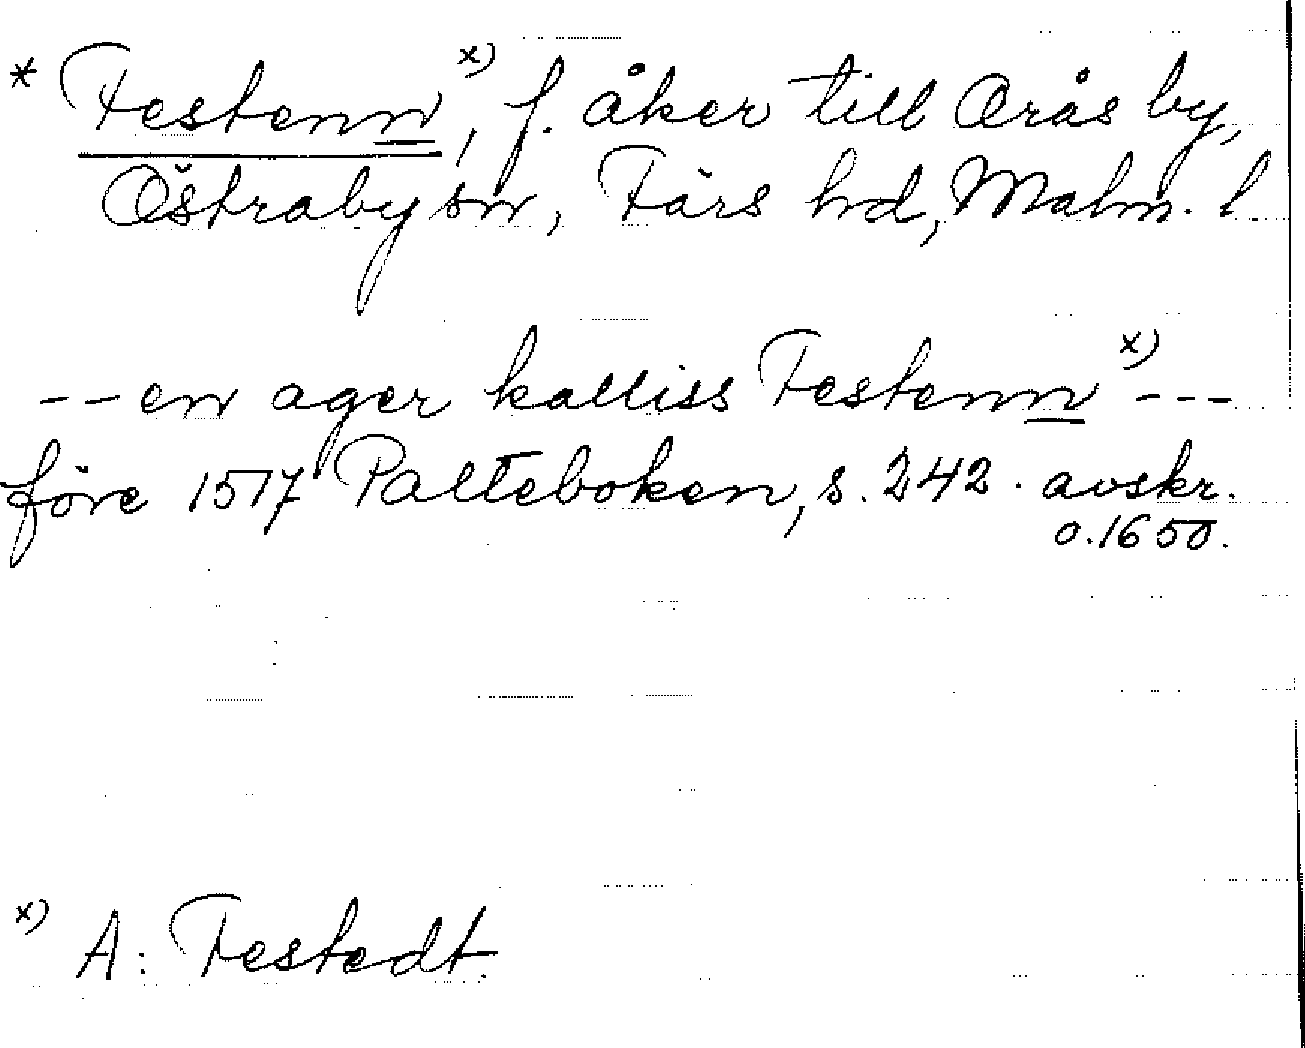 * Festenn x), f. åker till Örås by,
Östraby sn, Färs hd, Malm. l.
-- en ager kalliss Festenn x) ---
före 1517 Palteboken, s. 242. avskr.
o. 1650.
x) A: Festedt.